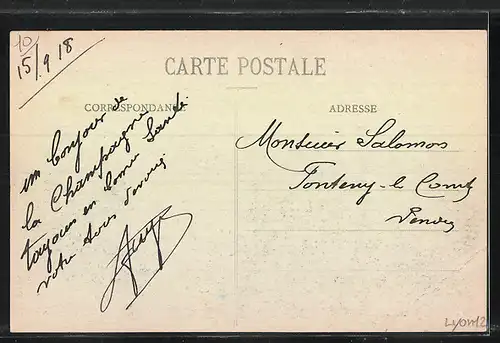 10
15/9 18
CARTE POSTALE
CORRESPONDANCE
ADRESSE
un bonjour de
la Champagne
toujours en bonne Santé
votre
Monsieur Salomos
Fonteny-le Comte
Vendée
Lyon12